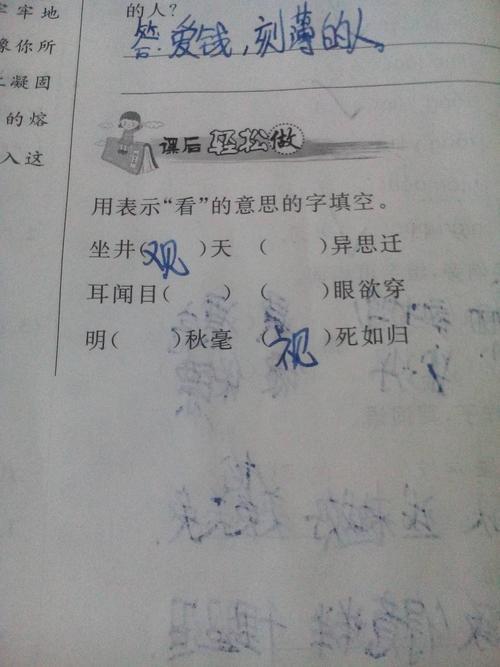 牢牢地
像你所
凝固
的熔
入这
的人?
答:爱钱,刻薄的人。
课后轻松做
用表示“看”的意思的字填空。
坐井(观)天 ( )异思迁
耳闻目( ) ( )眼欲穿
明( )秋毫 (视)死如归